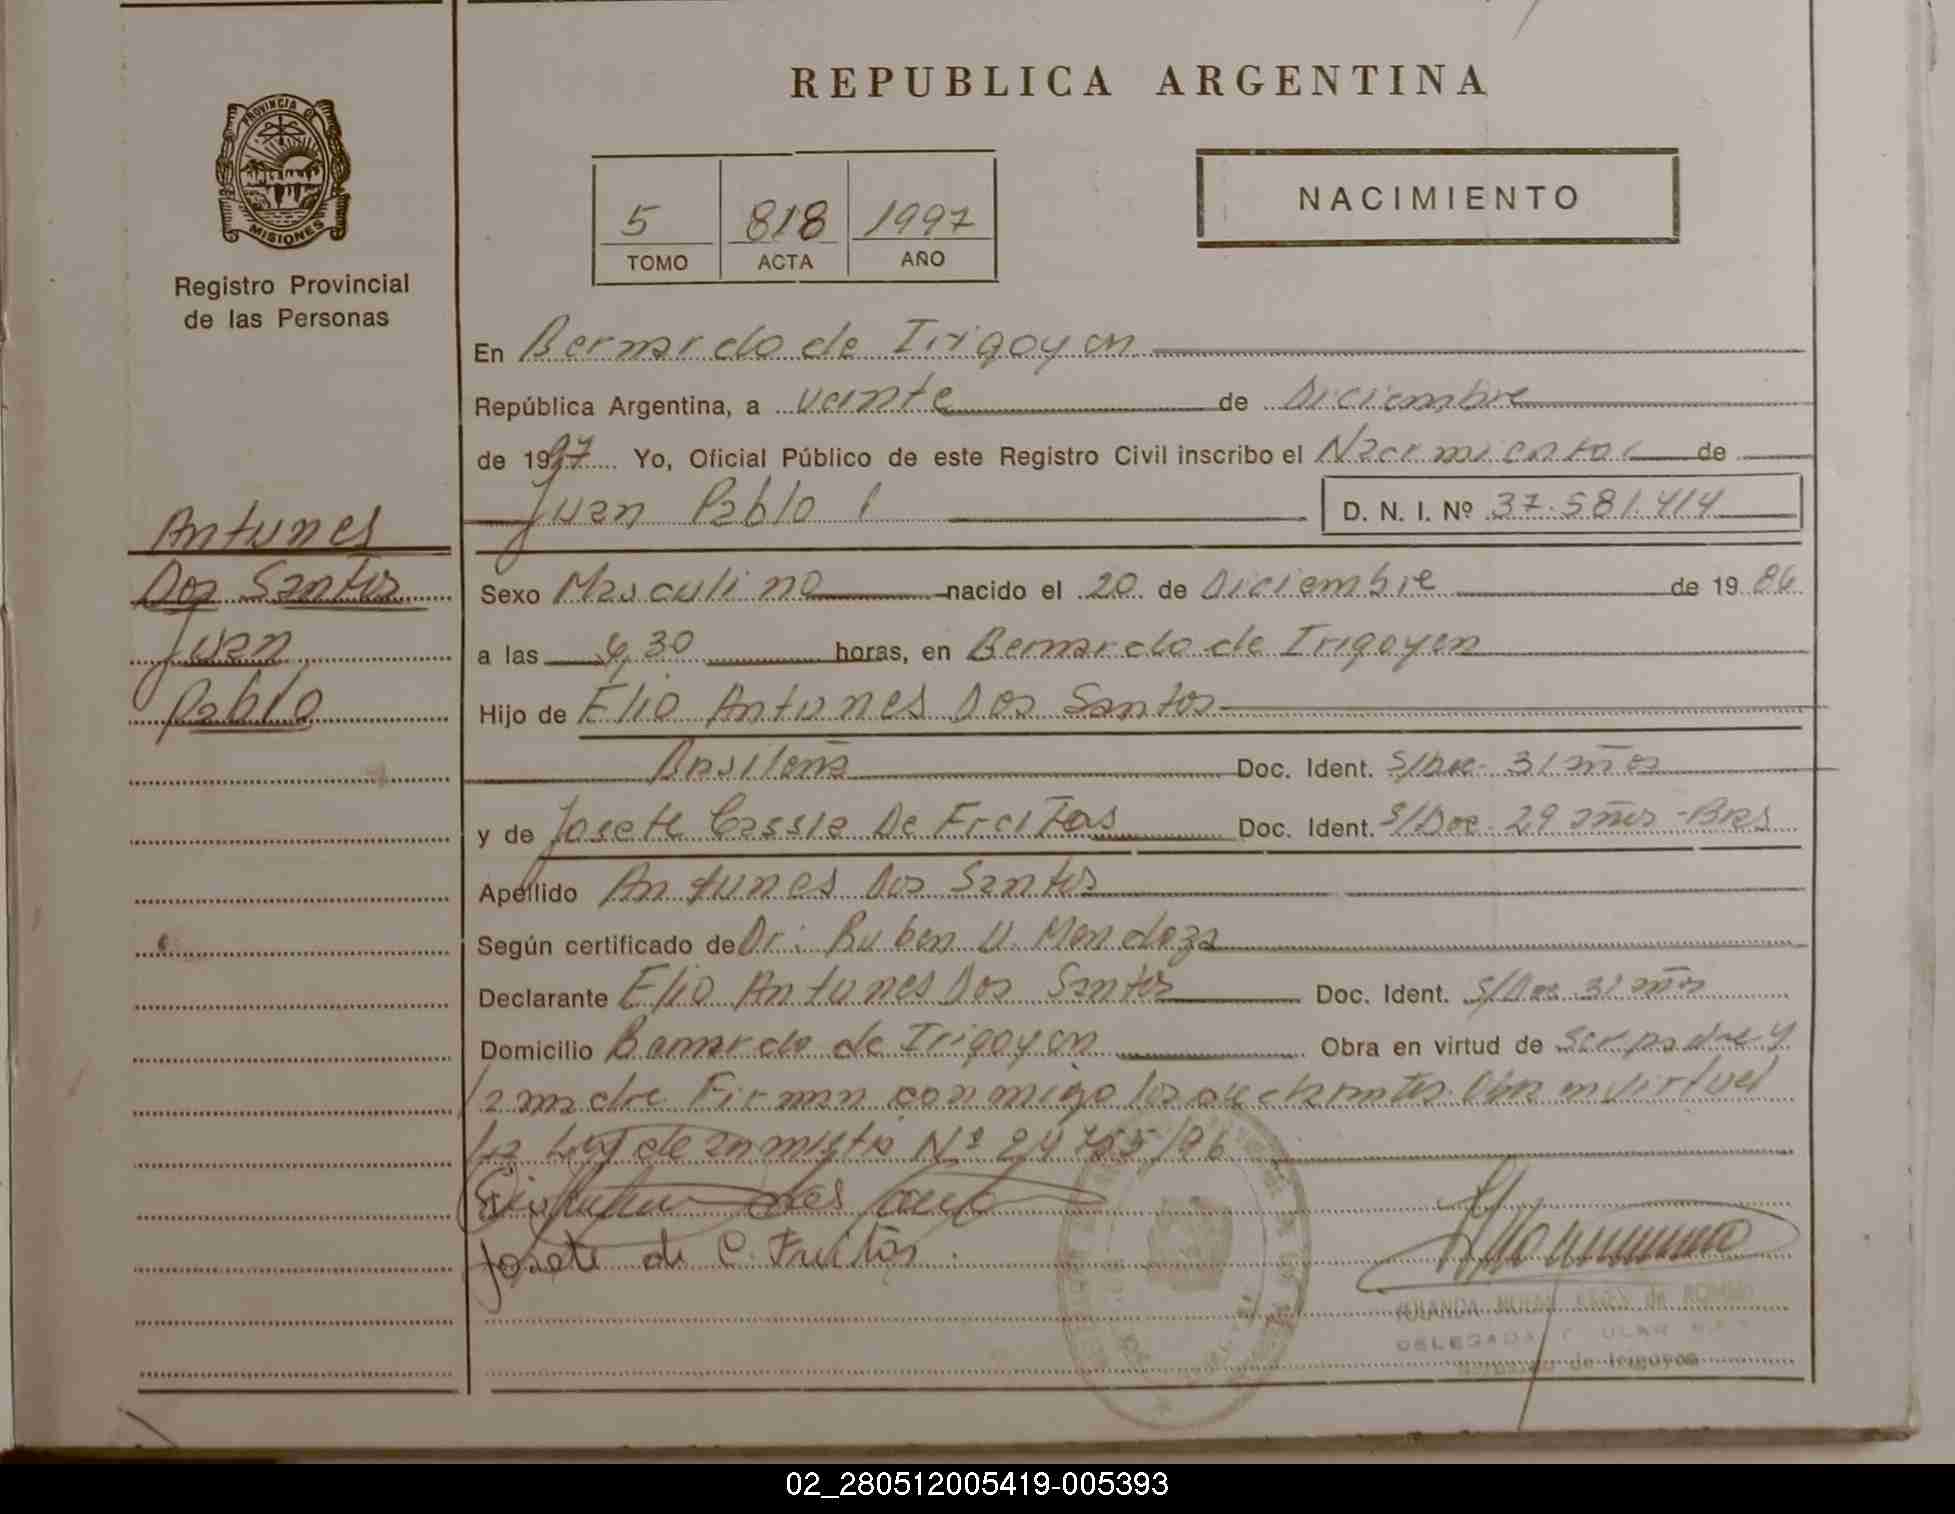 REPUBLICA ARGENTINA
PROVINCIA DE
MISIONES
Registro Provincial
de las Personas
NACIMIENTO
5 818 1997
TOMO ACTA AÑO
En Bernardo de Irigoyen
República Argentina, a veinte de Diciembre
de 1997 Yo, Oficial Público de este Registro Civil inscribo el de
Juan Pablo D. N. I. Nº 37.581.414
Antunes
Dos Santos
Juan
Pablo
Sexo Masculino nacido el 20 de Diciembre de 19 86
a las 4,30 horas, en Bernardo de Irigoyen
Hijo de Elio Antunes Dos Santos
Doc. Ident. S/Doc. 31 años
y de Josete Cassia De Freitas Doc. Ident. S/Doc. 29 años - Bras
Apellido Antunes Dos Santos
Según certificado de Dr: Ruben V. Mendoza
Declarante Elio Antunes Dos Santos Doc. Ident. S/Doc 31 años
Domicilio Bernardo de Irigoyen Obra en virtud de ser padre y
la madre Firman conmigo los declarantes. Obra en virtud
la Ley de Nº 24755/96
Josete de C. Freitas.
de Irigoyen
02_280512005419-005393